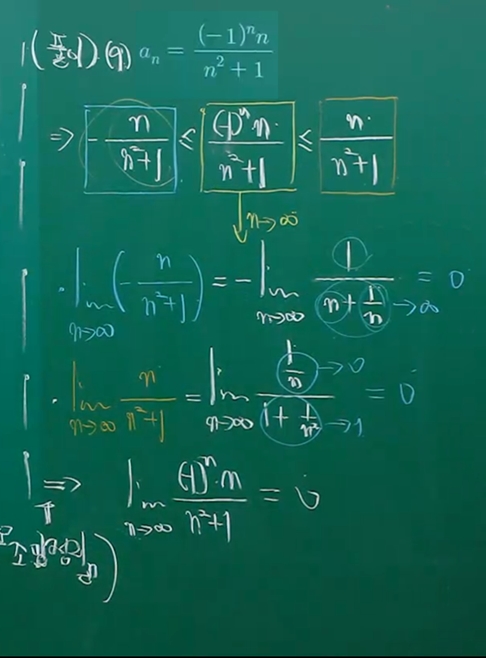 (풀이) (9) a_n = \frac{(-1)^n n}{n^2+1}
=> -\frac{n}{n^2+1} ≤ \frac{(-1)^n \cdot n}{n^2+1} ≤ \frac{n}{n^2+1}
n→∞
· \lim_{n→∞} \left(-\frac{n}{n^2+1}\right) = -\lim_{n→∞} \frac{1}{n+\frac{1}{n}} = 0
→∞
· \lim_{n→∞} \frac{n}{n^2+1} = \lim_{n→∞} \frac{\frac{1}{n}}{1+\frac{1}{n^2}} = 0
→0
→1
=> \lim_{n→∞} \frac{(-1)^n \cdot n}{n^2+1} = 0